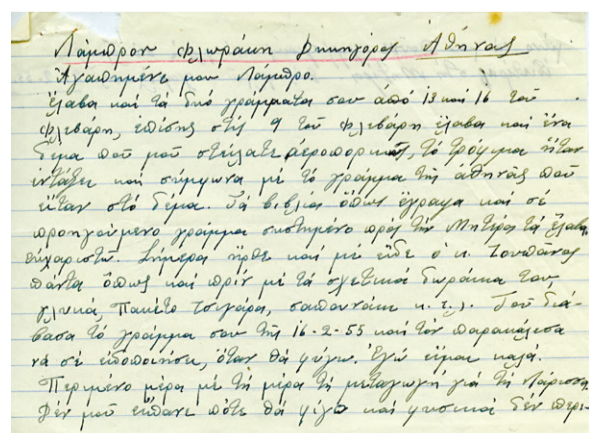 Λάμπρον Φλωράκη Δικηγόρος Ἀθήνας
Ἀγαπημένε μου Λάμπρο.
Ἔλαβα καί τά δυό γράμματα σου ἀπό 13 καί 16 τοῦ
Φλεβάρη, ἐπίσης στίς 9 τοῦ Φλεβάρη ἔλαβα καί ἕνα
δέμα ποῦ μοῦ στείλατε ἀεροπορικῶς, τό τρόφιμα ἦταν
ἐντάξει καί σύμφωνα μέ τό γράμμα τῆς Ἀθηνᾶς ποῦ
εἶταν στό δέμα. Τά βιβλία ὅπως ἔγραψα καί σέ
προηγούμενο γράμμα συστημένο προς τήν Μητέρα τά ἔλαβα
εὐχαριστῶ. Σήμερα ἦρθε καί μέ εἶδε ὁ κ. Τουπάνος
πάντα ὅπως καί πρίν μέ τά σχετικά δωράκια του,
γλυκά, πακέτο τσιγάρα, σαπουνάκι κ.τ.λ. Τοῦ διά-
βασα τό γράμμα σου τῆς 16-2-55 καί τόν παρακάλεσα
νά σέ εἰδοποιήση, ὅταν θά φύγω. Ἐγώ εἶμαι καλά.
Περιμένο μέρα μέ τή μέρα τή μεταγωγή γιά τή Λάρισσα
Δέν μοῦ εἴπανε πότε θά φίγω καί φυσικά δέν περι-